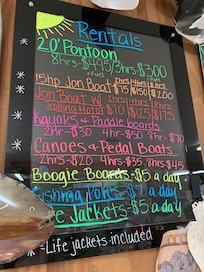 Rentals
20' Pontoon
8hrs-$495/3hrs-$300
+Fuel +Fuel
15hp Jon Boat 2hrs 4hrs 8hrs
$75 $150 $200
Jon Boat w/ 2hrs 4hrs 8hrs
Trolling Motor $70-$125 $175
Kayaks & Paddle boards
2hr-$30 4hr-$50 8hr-$70
Canoes & Pedal Boats
2hrs-$20 4hrs$35 8hrs$45
Boogie Boards-$5 a day
Fishing Poles-$ a day
Life Jackets-$5 a day
*=Life jackets-included